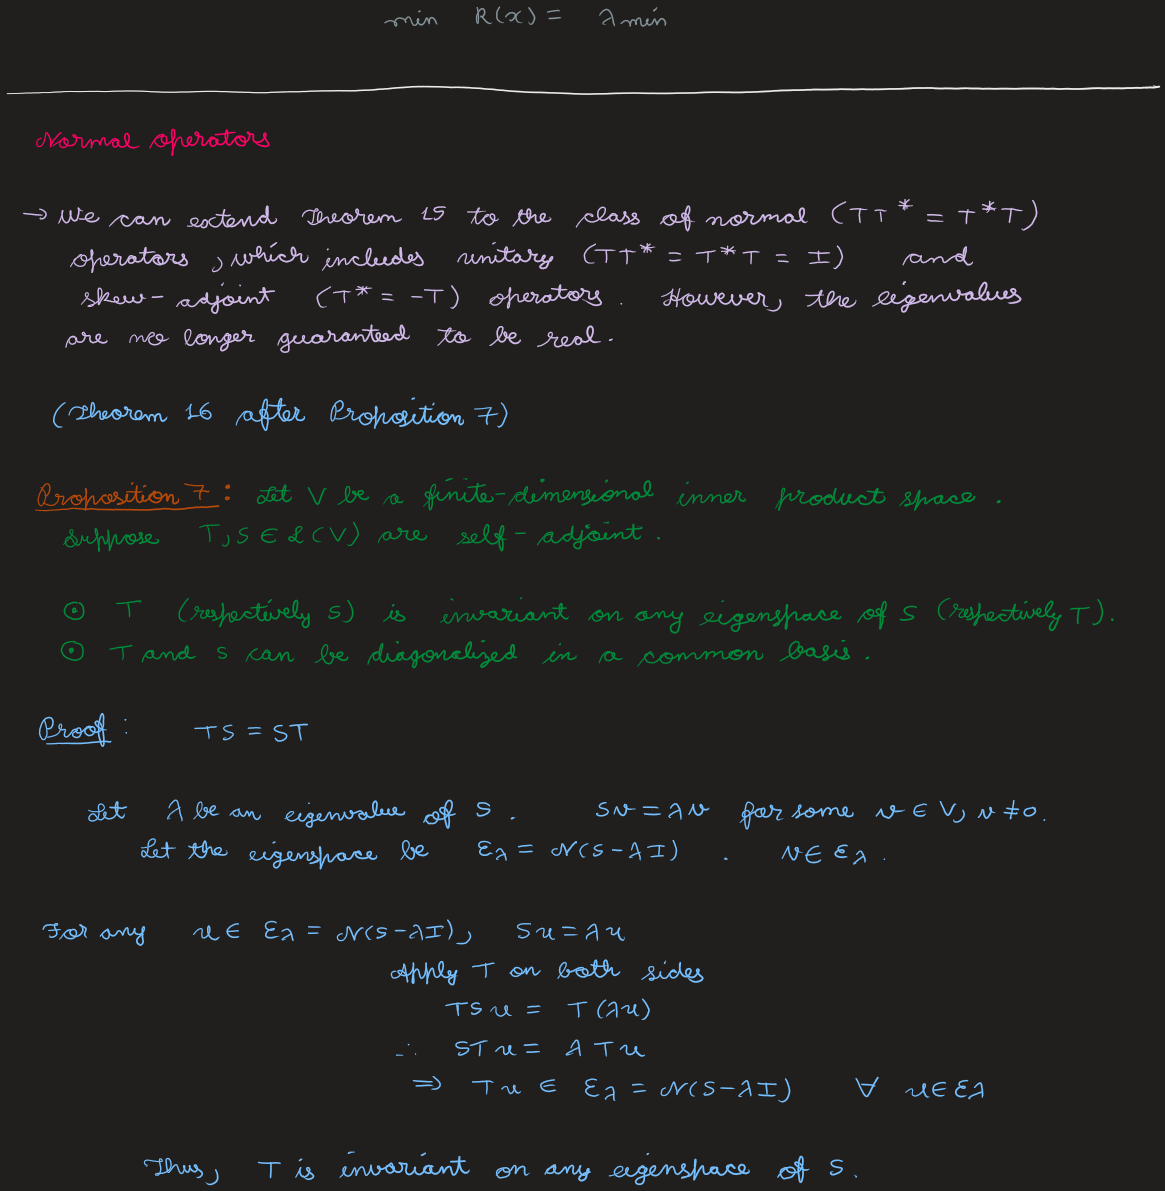 min R(x) = λ min
Normal operators
→ We can extend Theorem 15 to the class of normal (TT* = T*T)
operators, which includes unitary (TT* = T*T = I) and
skew-adjoint (T* = -T) operators. However, the eigenvalues
are no longer guaranteed to be real.
(Theorem 16 after Proposition 7)
Proposition 7: Let V be a finite-dimensional inner product space.
Suppose T, S ∈ L(V) are self-adjoint.
⊙ T (respectively S) is invariant on any eigenspace of S (respectively T).
⊙ T and S can be diagonalized in a common basis.
Proof: TS = ST
Let λ be an eigenvalue of S. Sv = λv for some v ∈ V, v ≠ 0.
Let the eigenspace be Ελ = N(S-λI). v ∈ Ελ.
For any u ∈ Ελ = N(S-λI), Su = λu
Apply T on both sides
TSu = T(λu)
∴ STu = λTu
⇒ Tu ∈ Ελ = N(S-λI) ∀ u ∈ Ελ
Thus, T is invariant on any eigenspace of S.